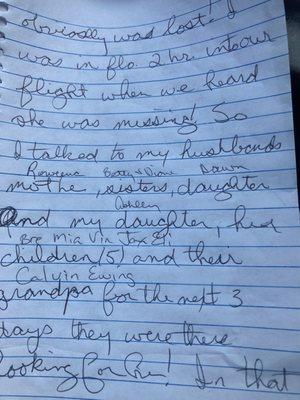 obviously was lost! I
was in flo. 2 hr. into our
flight when we heard
she was missing! So
I talked to my hushbonds
Rowena Dawn
mothe, sisters, daughter
Ashley
And my daughter, her
Bre Mia Vin Jax Eli
children (5) and their
Calvin Ewing
grandpa for the next 3
days they were there
looking for her! In that